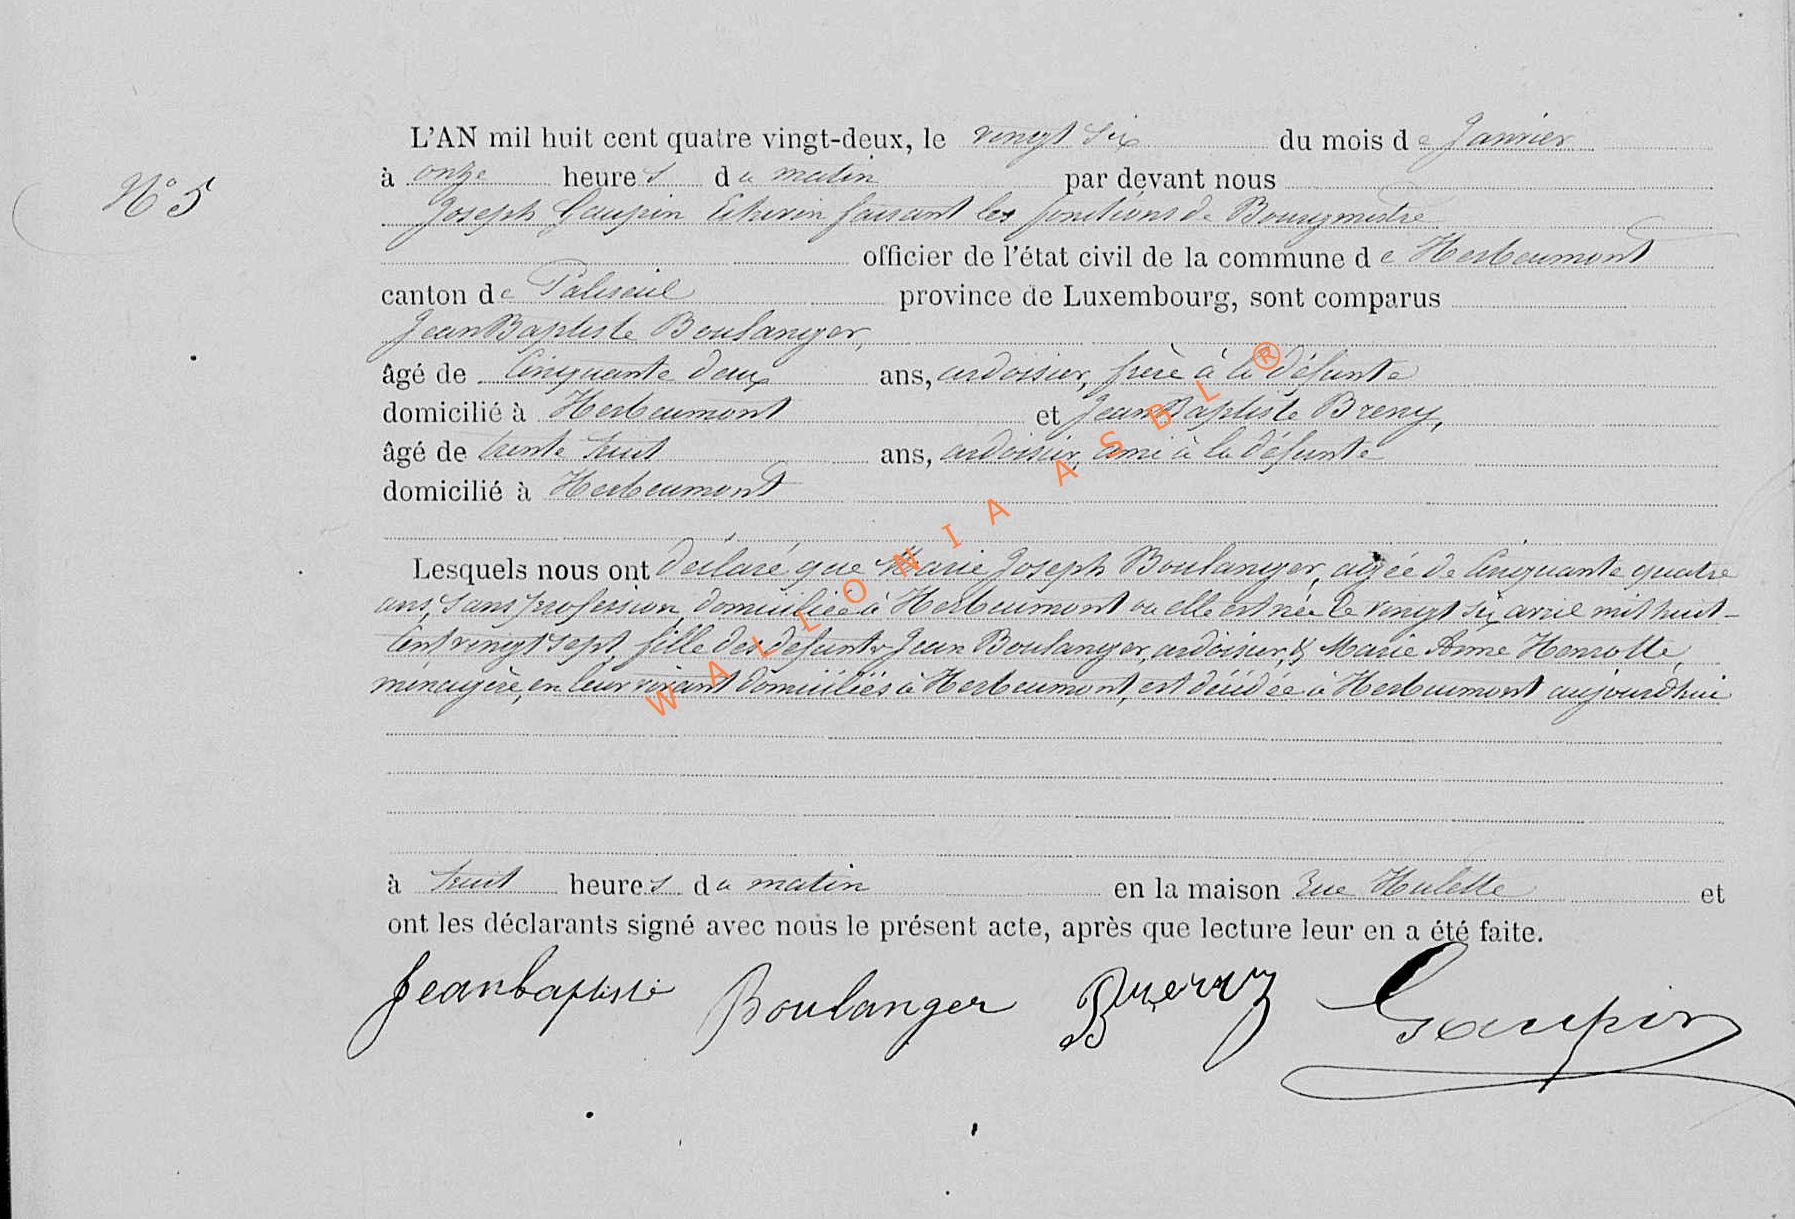 L'AN mil huit cent quatre vingt-deux, le vingt six du mois de Janvier
N° 5
à onze heures du matin par devant nous
Joseph Gaupin Echevin faisant les fonctions de Bourgmestre
officier de l'état civil de la commune de Herbeumont
canton de Paliseul province de Luxembourg, sont comparus
Jean Baptiste Boulanger,
âgé de Cinquante deux ans, ardoisier, frère à la défunte
domicilié à Herbeumont et Jean Baptiste Breny,
âgé de trente huit ans, ardoisier, ami à la défunte
domicilié à Herbeumont
Lesquels nous ont déclaré que Marie Joseph Boulanger, agée de Cinquante quatre
ans, sans profession, domiciliée à Herbeumont ou elle est née le vingt six avril mil huit-
Cent vingt sept, fille des defunts Jean Boulanger, ardoisier, & Marie Anne Henrotte,
menagère, en leur vivant domiciliés à Herbeumont, est décédée à Herbeumont aujourdhui
à huit heures du matin en la maison rue Hulette et
ont les déclarants signé avec nous le présent acte, après que lecture leur en a été faite.
Jeanbaptiste Boulanger Gaupin
WALLONIA ASBL ®